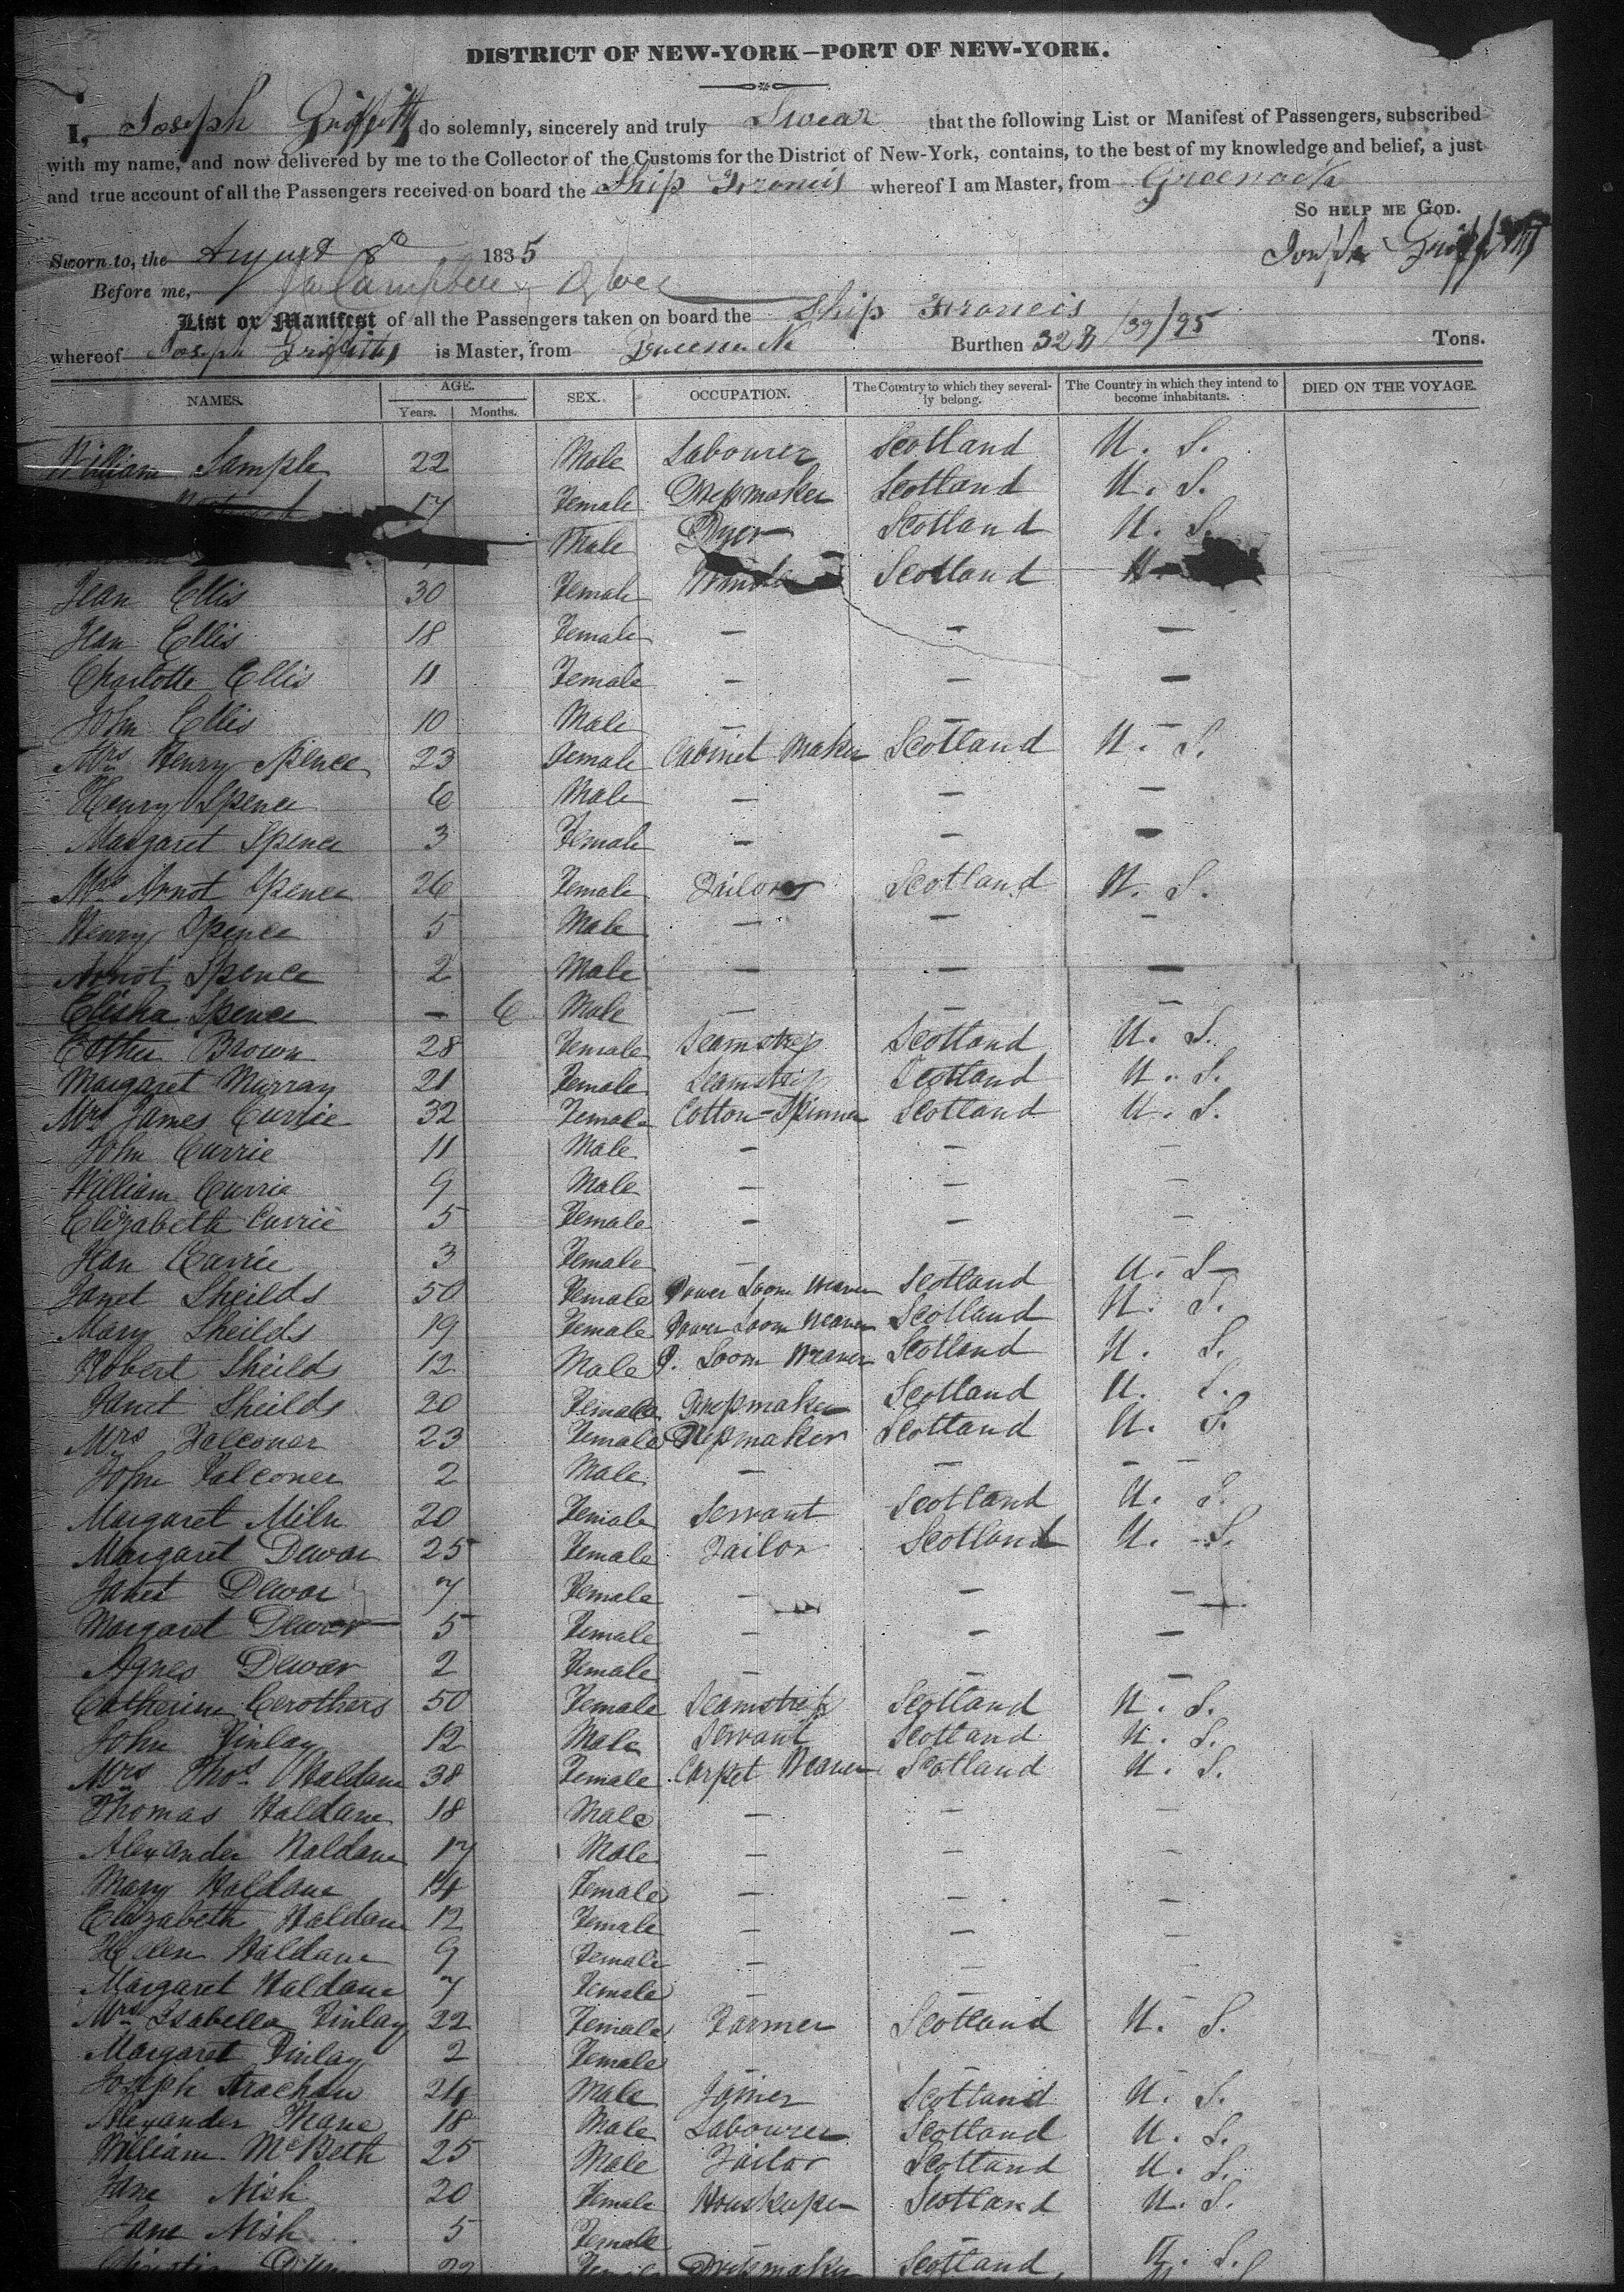 DISTRICT OF NEW-YORK—PORT OF NEW-YORK.
I, Joseph Griffith do solemnly, sincerely and truly Swear that the following List or Manifest of Passengers, subscribed
with my name, and now delivered by me to the Collector of the Customs for the District of New-York, contains, to the best of my knowledge and belief, a just
and true account of all the Passengers received on board the Ship Francis whereof I am Master, from Greenock
SO HELP ME GOD.
Sworn to, the August 8 1835 Joseph Griffith
Before me, Campbell
List or Manifest of all the Passengers taken on board the Ship Francis
whereof Joseph Griffith is Master, from Greenock Burthen 328 39/95 Tons.
NAMES. AGE. Years. Months. SEX. OCCUPATION. The Country to which they severally belong. The Country in which they intend to become inhabitants. DIED ON THE VOYAGE.
William Sample 22 Male Labourer Scotland U. S.
17 Female Dressmaker Scotland U. S.
Male Dyer Scotland U. S.
Jean Ellis 30 Female Scotland U.
Jean Ellis 18 Female — — —
Charlotte Ellis 11 Female — — —
John Ellis 10 Male — — —
Mrs Henry Spence 23 Female Cabinet Maker Scotland U. S.
Henry Spence 6 Male — — —
Margaret Spence 3 Female — — —
Mrs Arnot Spence 26 Female Tailor Scotland U. S.
Henry Spence 5 Male — — —
Arnot Spence 2 Male — — —
Elisha Spence — 6 Male — — —
Esther Brown 28 Female Seamstress Scotland U. S.
Margaret Murray 21 Female Seamstress Scotland U. S.
Mrs James Currie 32 Female Cotton-Spinner Scotland U. S.
John Currie 11 Male — — —
William Currie 9 Male — — —
Elizabeth Currie 5 Female — — —
Jean Currie 3 Female —
Janet Sheilds 50 Female Power Loom Weaver Scotland U. S.
Mary Sheilds 19 Female Power Loom Weaver Scotland U. S.
Robert Sheilds 12 Male P. Loom Weaver Scotland U. S.
Janet Sheilds 20 Female Dressmaker Scotland U. S.
Mrs Falconer 23 Female Dressmaker Scotland U. S.
John Falconer 2 Male — — — —
Margaret Miln 20 Female Servant Scotland U. S.
Margaret Dewar 25 Female Tailor Scotland U. S.
Janet Dewar 7 Female — — —
Margaret Dewar 5 Female — — —
Agnes Dewar 2 Female — — —
Catherine Cerothers 50 Female Seamstress Scotland U. S.
John Finlay 12 Male Servant Scotland U. S.
Mrs Thos Haldane 38 Female Carpet Weaver Scotland U. S.
Thomas Haldane 18 Male — — —
Alexander Haldane 17 Male — — —
Mary Haldane 14 Female — — —
Elizabeth Haldane 12 Female — — —
Helen Haldane 9 Female — — —
Margaret Haldane 7 Female — — —
Mrs Isabella Finlay 22 Female Farmer Scotland U. S.
Margaret Finlay 2 Female — — —
Joseph Strachan 24 Male Joiner Scotland U. S.
Alexander 18 Male Labourer Scotland U. S.
William McBeth 25 Male Tailor Scotland U. S.
Jane Nish 20 Female Housekeeper Scotland U. S.
Jane Nish 5 Female —
22 Female Dressmaker Scotland U. S.